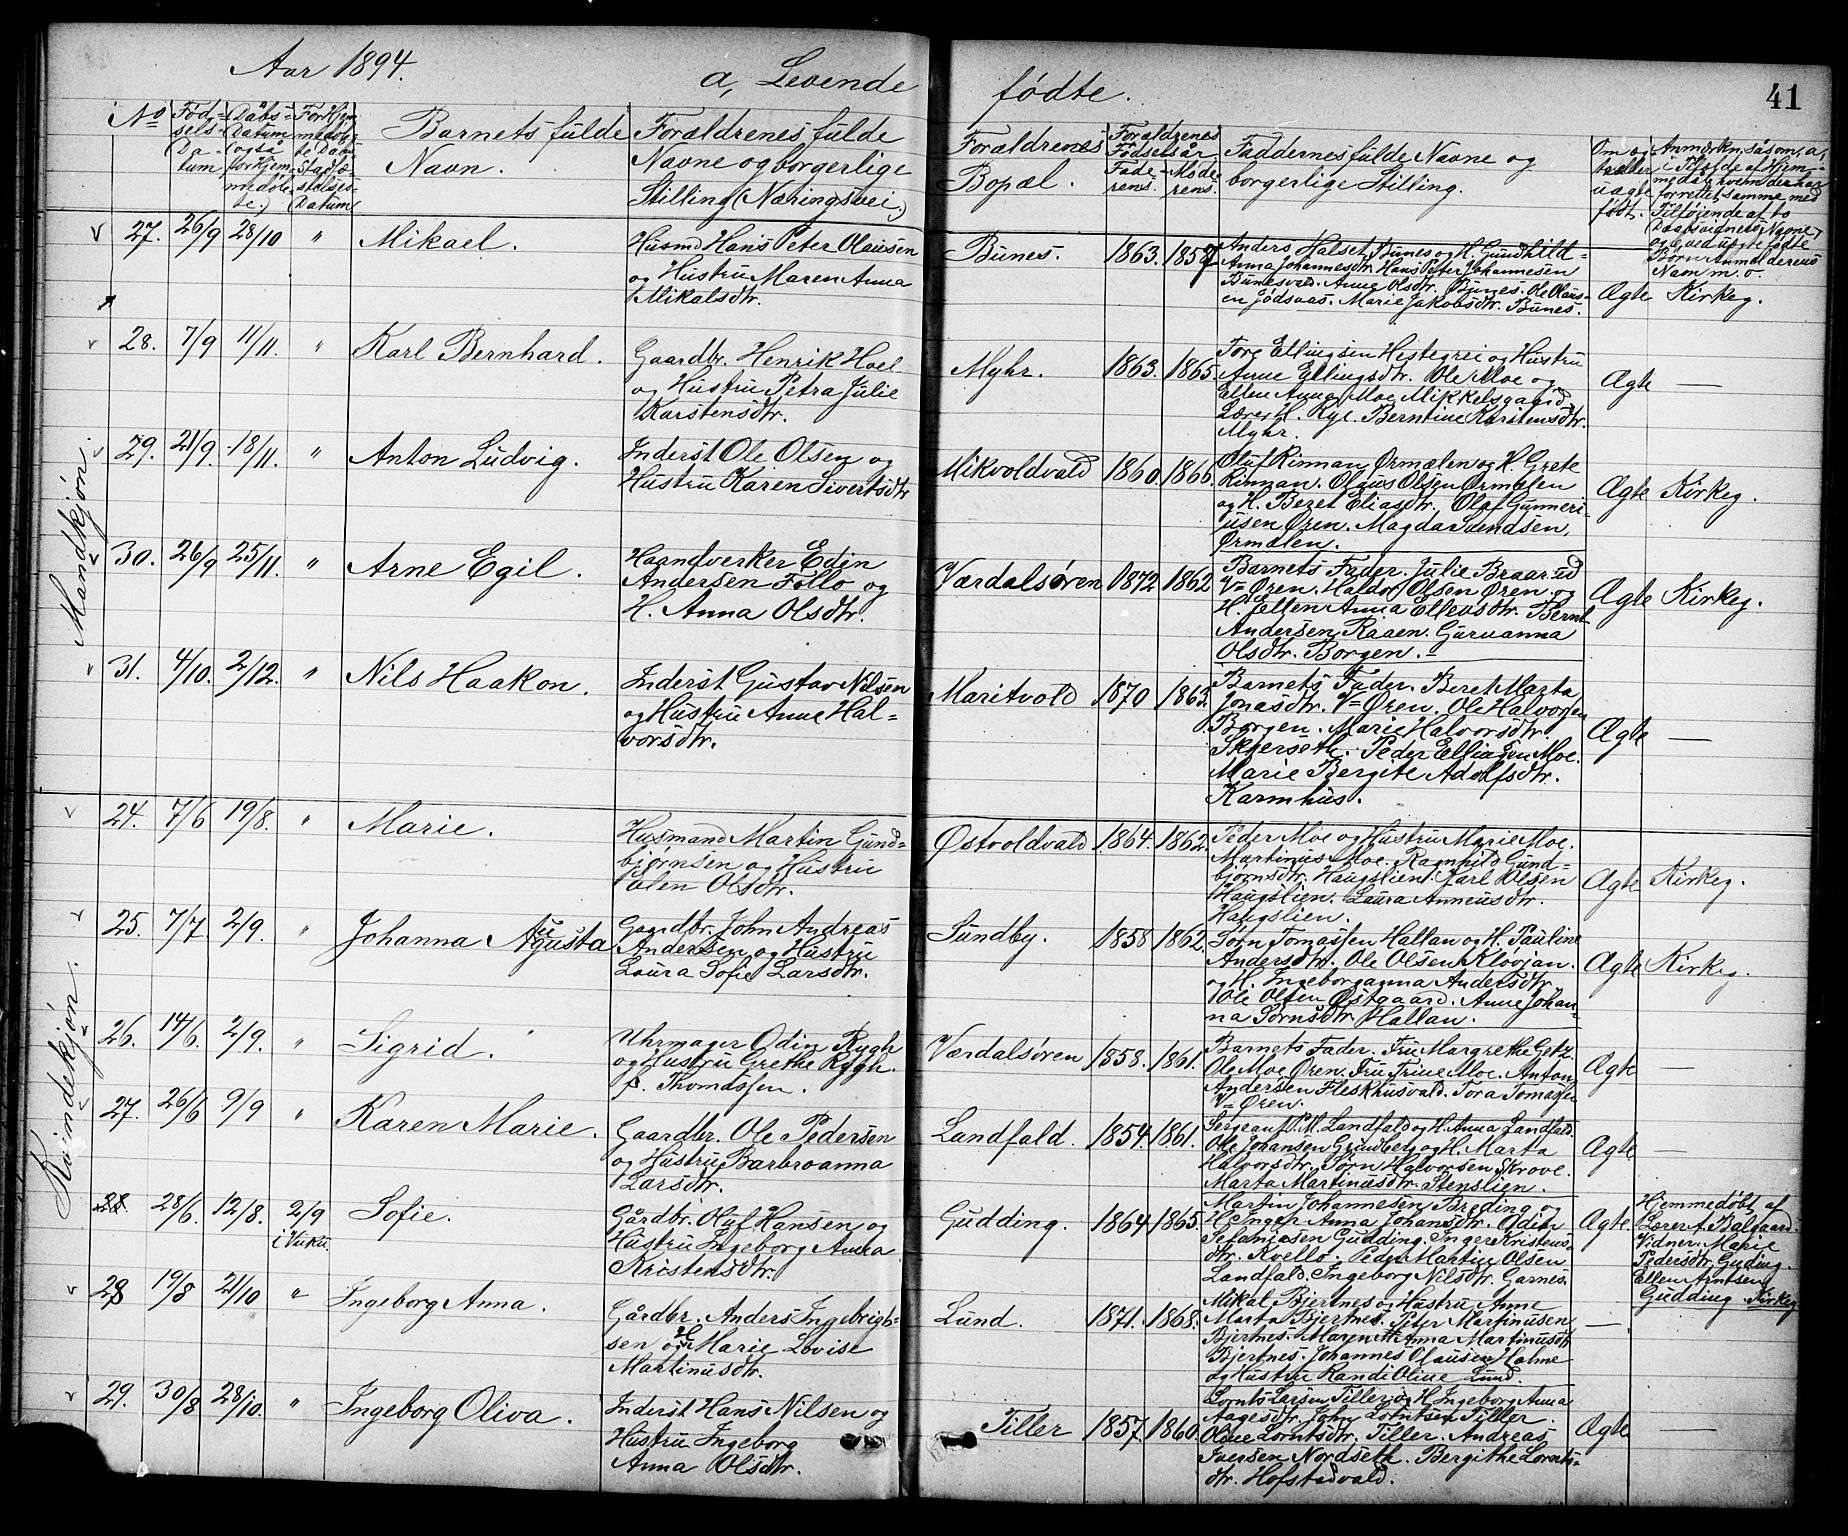 Aar 1894.
a, Levende fødte.
41
No
Fødselsdatum
Daabsdatum (også for Hjemmedøbte.)
For Hjemmedøbte Daabs Stadfæstelses Datum
Barnets fulde Navn.
Forældrenes fulde Navne og borgerlige Stilling (Næringsvei.)
Forældrenes Bopæl.
Forældrenes Fødselsår
Faderens. Moderens.
Faddernes fulde Navne og borgerlige Stilling.
Om ægte eller uægte født.
Mandkjøn.
27. 26/9 28/10 " Mikael.
Husmd Hans Peter Olausen
og Hustru Maren Anna
Mikalsdtr.
Bunes. 1863. 1857
Anders Halset, Bunes og H. Gundhild
Anna Johannesdtr. Hans Peter Johannesen
Bunesvald. Anne Olsdtr. Bunes. Ole Olaus-
en Jødsaas. Marie Jakobsdtr. Bunes.
Ægte Kirkeg.
28. 7/9 11/11. " Karl Bernhard.
Gaardbr. Henrik Hoel
og Hustru Petra Julie
Karstensdtr.
Myhr. 1863. 1865.
Tore Ellingsen Hestegrei og Hustru
Anne Ellingsdtr. Ole Moe og
Ellen Anna Moe Mikkelsgaard,
Lærer H. Rye. Berntine Karstensdtr.
Myhr.
Ægte —
29. 21/9. 18/11. " Anton Ludvig.
Inderst Ole Olsen og
Hustru Karen Sivertsdtr
Mikvoldvald 1860. 1866.
Oluf Rinnan Ørmælen og H. Grete
Rinnan. Olaus Olsen Ørmelen
og H. Beret Eliasdtr. Olaf Gunneri-
usen Øren. Magda Svendsen,
Ørmælen.
Ægte Kirkeg.
30. 26/9 25/11. " Arne Egil.
Haandverker Edin
Andersen Follo og
H. Anna Olsdtr.
Værdalsøren 1872 1862
Barnets Fader. Julie Braarud
V= Øren. Haldor Olsen Øren og
H. Ellen Anna Ellevsdtr. Bernt
Andersen Raaen. Guruanna
Olsdtr. Borgen.
Ægte Kirkeg.
31. 4/10. 2/12. " Nils Haakon.
Inderst Gustav Nilsen
og Hustru Anne Hal-
vorsdtr.
Maritvold 1870 1865.
Barnets Fader. Beret Marta
Jonasdtr. V= Øren. Ole Halvorsen
Borgen. Marie Halvorsdtr.
Skjerseth. Peder Elliassen Moe.
Marie Bergete Adolfsdtr.
Karmhus.
Ægte —
Kvindekjøn.
24. 7/6 19/8. " Marie.
Husmand Martin Gund-
bjørnsen og Hustru
Olen Olsdtr.
Østvoldvald 1864. 1862.
Peder Moe og Hustru Marie Moe.
Martinus Moe. Ragnhild Gund-
bjørnsdtr. Haugslien. Karl Olsen
Haugslien. Laura Anneusdtr.
Haugslien.
Ægte Kirkeg.
25. 7/7 2/9. " Johanna Augusta
Gaardbr. John Andreas
Andersen og Hustru
Laura Sofie Larsdtr.
Sundby. 1858 1862.
Sørn Tomassen Hallan og H. Pauline
Andersdtr. Ole Olsen Klovjan.
og H. Ingeborganna Andersdtr.
Ole Olsen Østgaard. Anne Johan-
na Sørnsdtr Hallan.
Ægte Kirkeg.
26. 14/6. 2/9. " Sigrid.
Uhrmager Odin Rygh
og Hustru Grethe Rygh
f. Thomassen.
Værdalsøren 1858. 1861.
Barnets Fader. Fru Margrethe Getz.
Ole Moe Øren. Fru Trine Moe. Anton
Andersen Fleskhusvald. Tora Tomassen
V= Øren.
Ægte —
27. 26/6 9/9 " Karen Marie.
Gaardbr. Ole Pedersen
og Hustru Barbroanna
Larsdtr.
Landfald. 1854. 1861.
Sergeant P. M. Landfald og H. Anna Landfald.
Ole Johansen Grundberg og H. Marta
Halvorsdtr. Sørn Halvorsen Skrove.
Marta Martinusdtr. Stenslien.
Ægte —
28/6. 12/8. 2/9 i Vuku. Sofie.
Gårdbr. Oluf Hansen og
Hustru Ingeborg Anna
Kristensdtr.
Gudding. 1864 1865.
Martin Johannesen Breding og
H. Inger Anna Johansdtr. Odin
Stefaniasen Gudding. Inger Kristens-
dtr. Kvello. Peder Martin Olsen
Landfald. Ingeborg Nilsdtr. Garnes.
Ægte
Hjemmedøbt af
Lærer A. Balgaard.
Vidner. Marie
Pedersdtr. Guding.
Ellen Arntsen
Gudding Kirkeg
28 19/8 21/10 " Ingeborg Anna.
Gårdbr. Anders Ingebrigt-
sen og Marie Lovise
Martinusdtr.
Lund. 1871. 1868.
Mikal Bjertnes og Hustru Anne
Marta Bjertnes. Peter Martinusen
Bjertnes. Maren Anna Martinusdtr
Bjertnes. Johannes Olausen Holme
og Hustru Randi Oline Lund.
—
29. 30/8 28/10. " Ingeborg Oliva.
Inderst Hans Nilsen og
Hustru Ingeborg
Anna Olsdtr.
Tiller 1857. 1860.
Lornts Larsen Tiller og H. Ingeborg Anna
Aagesdtr. John Lorntsen Tiller.
Oline Lorntsdtr. Tiller. Andreas
Iversen Nordseth. Bergithe Lornts-
dtr. Hofstadvald.
Ægte —